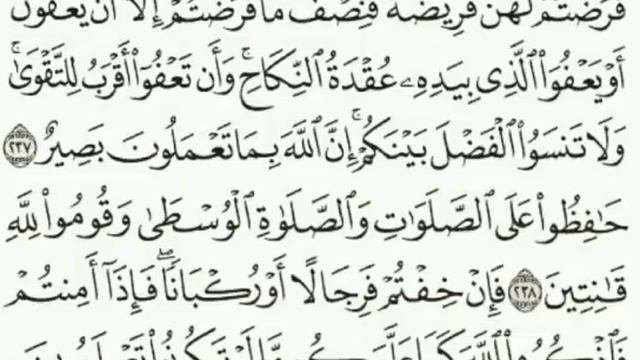 فَرَضْتُمْ لَهُنَّ فَرِيضَةً فَنِصْفُ مَا فَرَضْتُمْ إِلَّا أَن يَعْفُونَ
أَوْ يَعْفُوَا۟ ٱلَّذِى بِيَدِهِۦ عُقْدَةُ ٱلنِّكَاحِ ۚ وَأَن تَعْفُوٓا۟ أَقْرَبُ لِلتَّقْوَىٰ ۚ
وَلَا تَنسَوُا۟ ٱلْفَضْلَ بَيْنَكُمْ ۚ إِنَّ ٱللَّهَ بِمَا تَعْمَلُونَ بَصِيرٌ ٢٣٧
حَـٰفِظُوا۟ عَلَى ٱلصَّلَوَٰتِ وَٱلصَّلَوٰةِ ٱلْوُسْطَىٰ وَقُومُوا۟ لِلَّهِ
قَـٰنِتِينَ ٢٣٨ فَإِنْ خِفْتُمْ فَرِجَالًا أَوْ رُكْبَانًا ۖ فَإِذَآ أَمِنتُمْ
فَٱذْكُرُوا۟ ٱللَّهَ كَمَا عَلَّمَكُم مَّا لَمْ تَكُونُوا۟ تَعْلَمُونَ